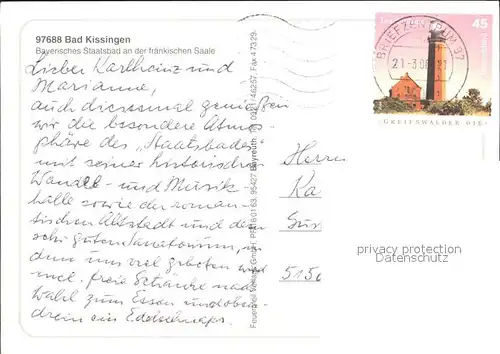 97688 Bad Kissingen
Bayerisches Staatsbad an der fränkischen Saale
Lieber Karlheinz und
Marianne,
auch diesesmal genießen
wir die besondere Atmos-
phäre des „Staatsbades“
mit seiner historischen
Wandel- und Musik
halle sowie der roman-
tischen Altstadt und dem
sehr guten Sanatorium, in
dem uns viel geboten wird
incl. freie Getränke nach
Wahl zum Essen und oben-
drein ein Edelschnaps.
Feuerpfeil Verlags GmbH, 95427 Bayreuth
BRIEFZENTRUM 97
45
GREIFSWALDER OIE
Herrn
Ka
515
privacy protection
Datenschutz